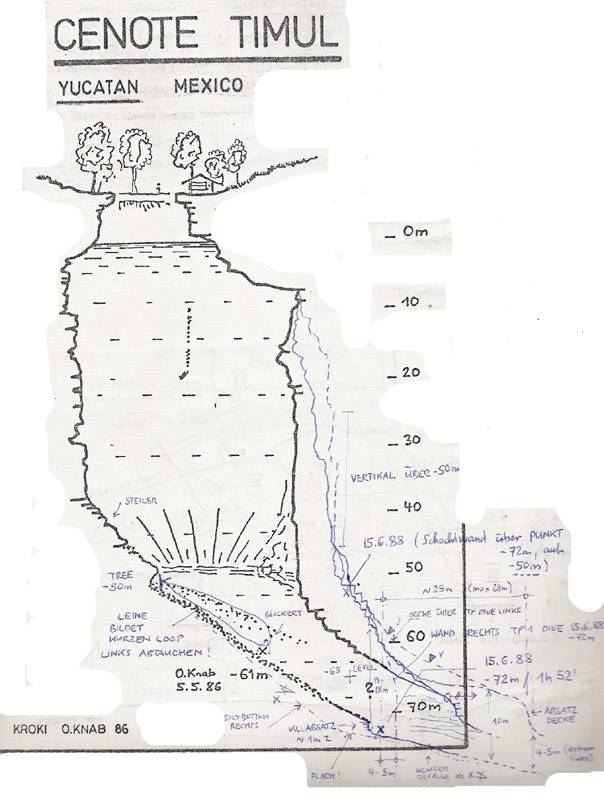 CENOTE TIMUL
YUCATAN MEXICO
0m
10
20
30
VERTIKAL ÜBER -50m
40
STEILER
15.6.88 (Schachtwand über PUNKT
-72m, auf
-50m)
50
TREE
-50m
~25m (max 28m)
BLOCKIERT
DECKE ÜBER TP DIVE LINKS!
LEINE
BILDET
KURZEN LOOP
LINKS ABTAUCHEN!
60
WAND RECHTS TP'1 DIVE 15.6.88
-72m
O.Knab
5.5.86
-61m
-65 LEVEL
15.6.88
72m / 1h 52'
?
70m
SILTBOTTOM
RECHTS
KL. ABSATZ
~1m2
10m
ABSATZ
DECKE
KROKI O.KNAB 86
FLACH!
4-5m
WENIGER
GEFÄLLE ab X
4-5m (extrem
links)